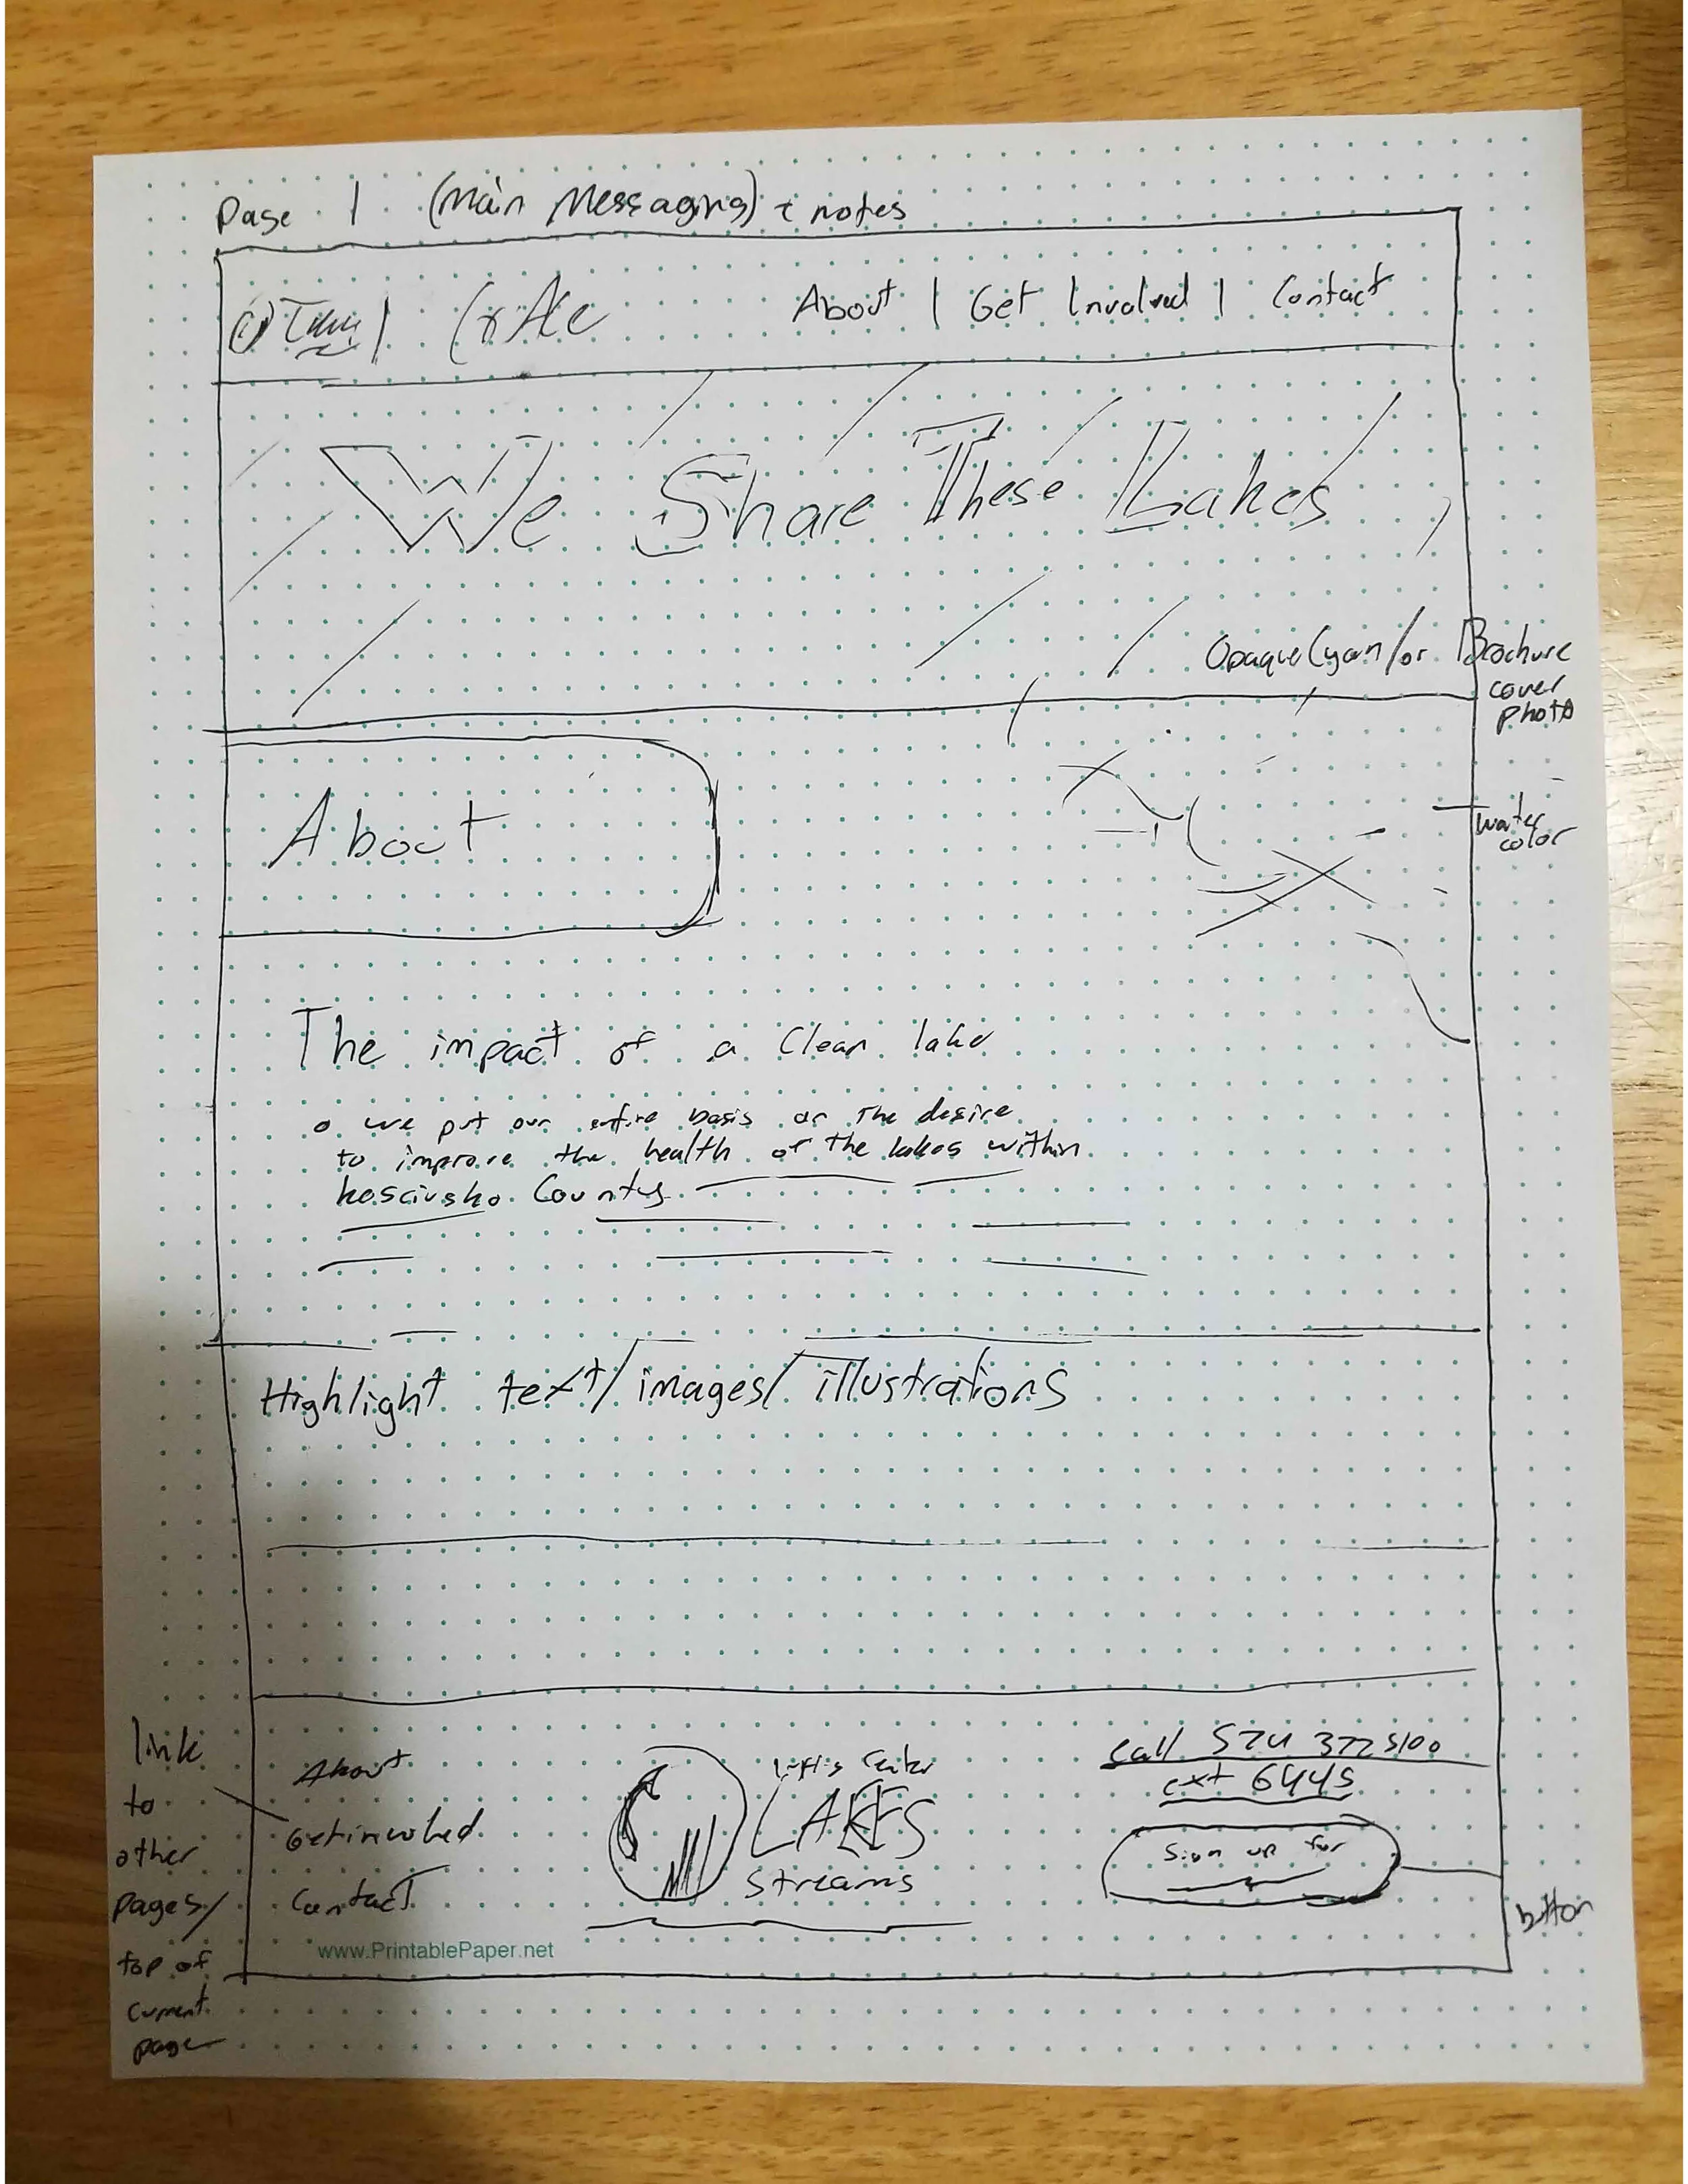 Page 1 (Main Messaging) + notes
About | Get Involved | Contact
We Share These Lakes
Opaque Cyan/or Brochure
cover
photo
About
water
color
The impact of a Clean lake
we put our entire basis on the desire
to improve the health of the lakes within
kosciusko County
Highlight text/images/illustrations
link
to
other
pages/
top of
current
page
About
Getinvolved
Contact
Center
LAKES
Streams
call 574 372 5100
ext 6445
Sign up for
button
www.PrintablePaper.net